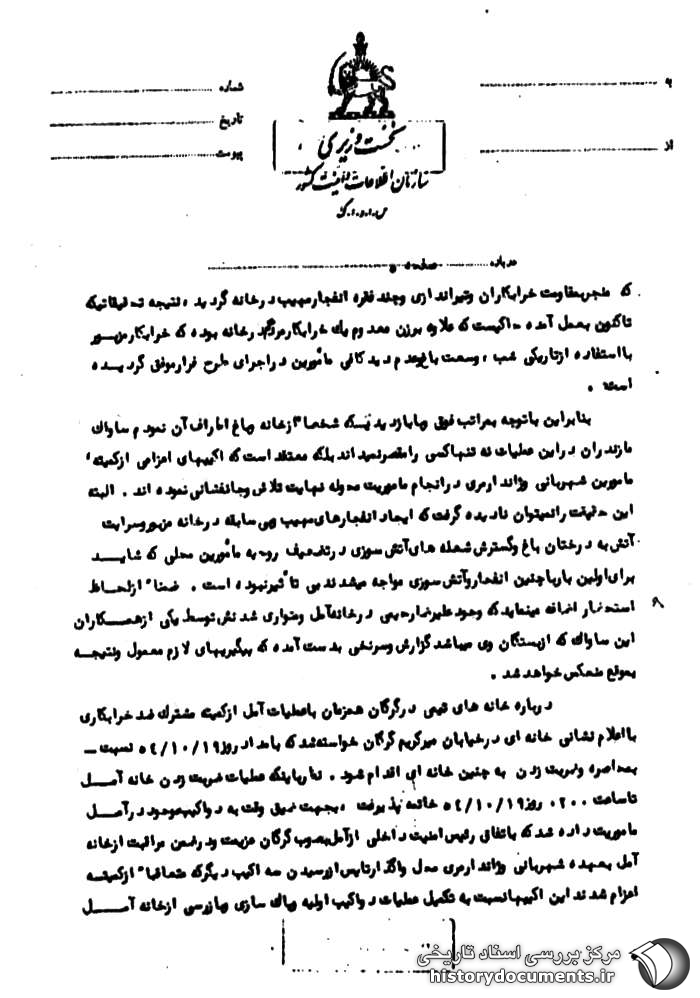 شماره
تاریخ
پیوست
از
نخست وزیری
سازمان اطلاعات و امنیت کشور
س.ا.و.ا.ک
درباره صفحه ه
که منجر بمقاومت خرابکاران و تیراندازی و چند فقره انفجار مهیب در خانه گردید، نتیجه تحقیقاتیکه
تاکنون بعمل آمده حاکیست که علاوه بر زن معدوم یک خرابکار مرد هم در خانه بوده که خرابکار مزبور
با استفاده از تاریکی شب، وسعت باغ و عدم دید کافی مأمورین در اجرای طرح فرار موفق گردیده
است.
بنابراین با توجه بمراتب فوق و با بازدیدیکه شخصا" از خانه و باغ اطراف آن نمودم ساواک
مازندران در این عملیات نه تنها کسی را مقصر نمیداند بلکه معتقد است که اکیپهای اعزامی از کمیته،
مامورین شهربانی و ژاندارمری در انجام ماموریت محوله نهایت تلاش و جانفشانی نموده اند. البته
این حقیقت را نمیتوان نادیده گرفت که ایجاد انفجارهای مهیب و بی سابقه در خانه مزبور و سرایت
آتش به درختان باغ و گسترش شعله های آتش سوزی در تضعیف روحیه مأمورین محلی که شاید
برای اولین بار با چنین انفجار و آتش سوزی مواجه میشدند بی تأثیر نبوده است. ضمنا" از لحاظ
استحضار اضافه مینماید که وجود علیرضا رحیمی در خانه آمل و متواری شدنش توسط یکی از همکاران
این ساواک که از بستگان وی میباشد گزارش و سرنخی بدست آمده که پیگیریهای لازم معمول و نتیجه
بموقع منعکس خواهد شد.
درباره خانه های تیمی در گرگان همزمان با عملیات آمل از کمیته مشترک ضد خرابکاری
با اعلام نشانی خانه ای در خیابان میرکریم گرگان خواسته شد که بامداد روز ۵۴/۱۰/۱۹ نسبت
بمحاصره و ضربت زدن به چنین خانه ای اقدام شود. نظر باینکه عملیات ضربت زدن خانه آمل
تا ساعت ۰۲۰۰ روز ۵۴/۱۰/۱۹ خاتمه پذیرفت، بجهت ضیق وقت به دو اکیپ موجود در آمل
ماموریت داده شد که باتفاق رئیس امنیت داخلی از آمل بصوب گرگان عزیمت و در ضمن مراقبت از خانه
آمل بعهده شهربانی و ژاندارمری محل واگذار تا پس از رسیدن سه اکیپ دیگر که متعاقبا" از کمیته
اعزام شدند این اکیپها نسبت به تکمیل عملیات دو اکیپ اولیه و پاک سازی و بازرسی از خانه آمل
مرکز بررسی اسناد تاریخی
historydocuments.ir